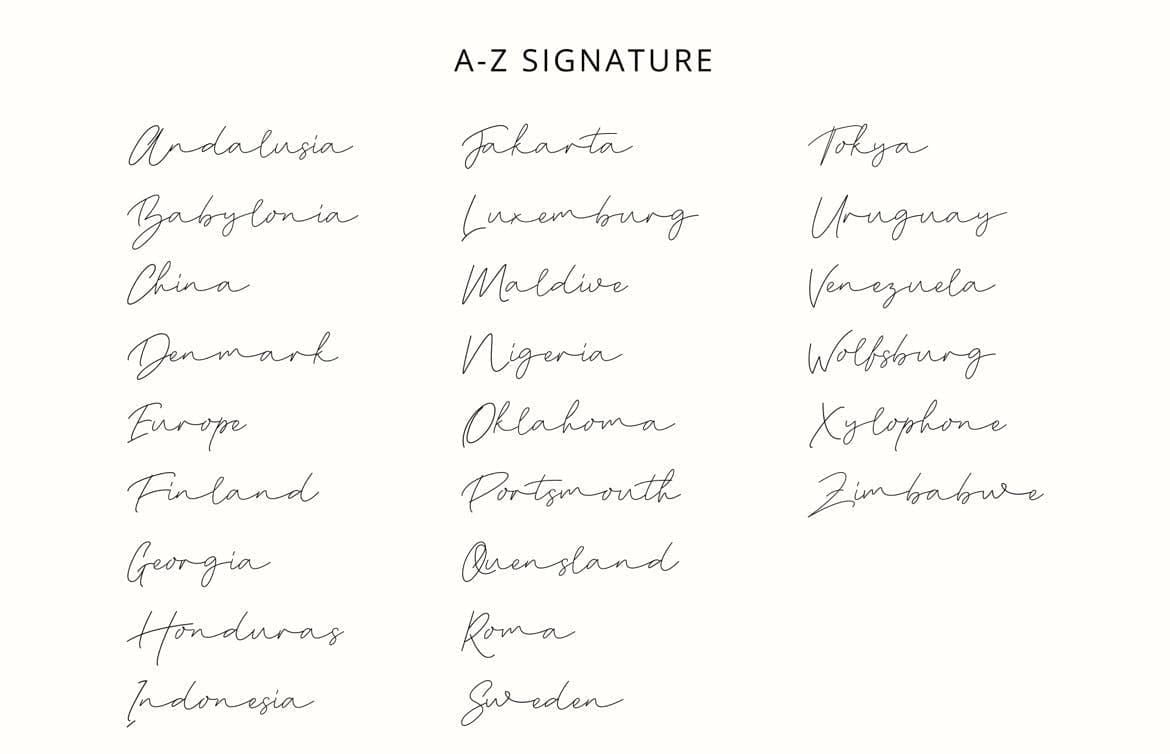 A-Z SIGNATURE
Andalusia
Babylonia
China
Denmark
Europe
Finland
Georgia
Honduras
Indonesia
Jakarta
Luxemburg
Maldive
Nigeria
Oklahoma
Portsmouth
Quensland
Roma
Sweden
Tokya
Uruguay
Venezuela
Wolfsburg
Xylophone
Zimbabwe